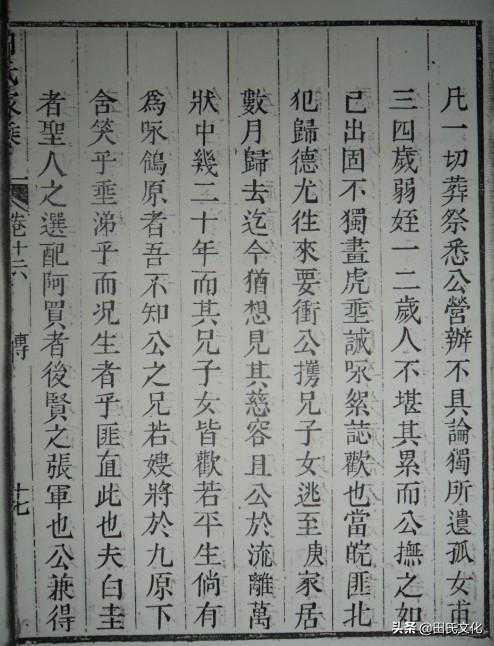 凡一切葬祭悉公營辦不具論獨所遺孤女甫
三四歲弱姪一二歲人不堪其累而公撫之如
己出固不獨畫虎垂誠咏絮誌歡也當皖匪北
犯歸德尤往來要衝公攜兄子女逃至庚家居
數月歸去迄今猶想見其慈容且公於流離萬
狀中幾二十年而其兄子女皆歡若平生倘有
為咏鴒原者吾不知公之兄若嫂將於九原下
含笑乎垂涕乎而況生者乎匪直此也夫白圭
者聖人之選配阿買者後賢之張軍也公兼得
氏家乘
卷十六
傳
十七
头条 @田氏文化